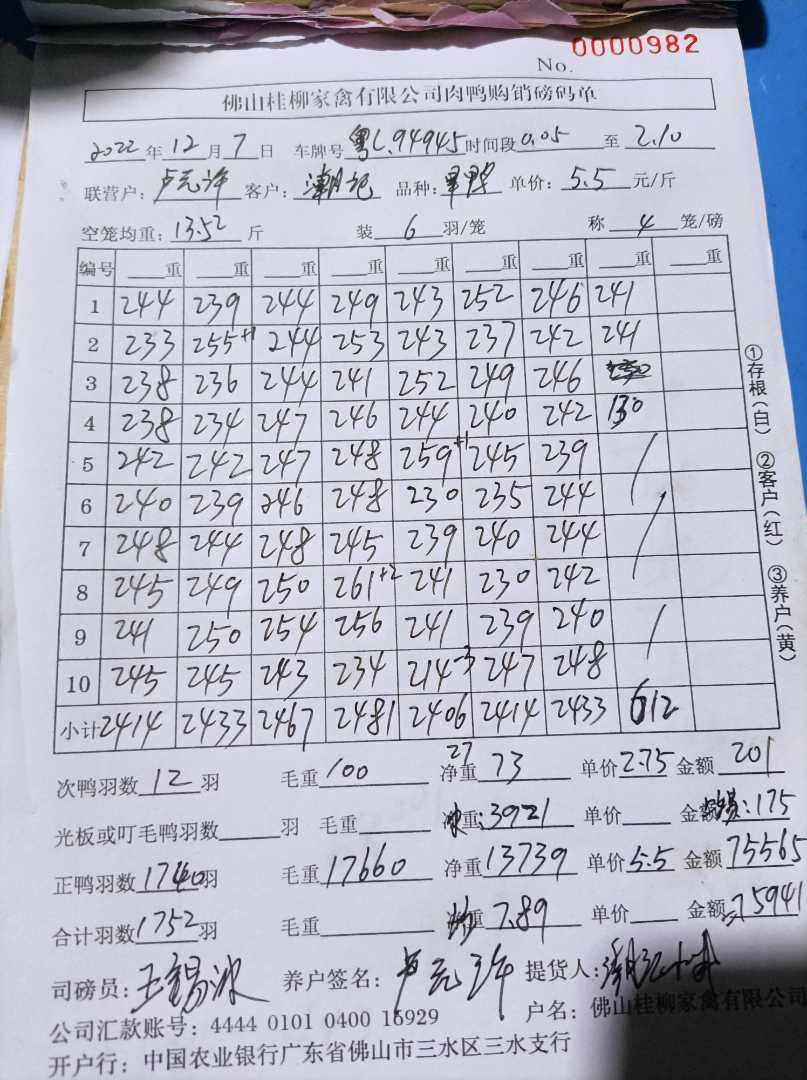 No. 0000982
佛山桂柳家禽有限公司肉鸭购销磅码单
2022 年 12 月 7 日 车牌号 粤L94945 时间段 0.05 至 2.10
联营户: 卢元许 客户: 潮记 品种: 单价: 5.5 元/斤
空笼均重: 13.52 斤 装 6 羽/笼 称 4 笼/磅
编号 重 重 重 重 重 重 重 重 重
1 244 239 244 249 243 252 246 241
2 233 255+1 244 253 243 237 242 241
3 238 236 244 241 252 249 246
4 238 234 247 246 244 240 242 130
5 242 242 247 248 259+1 245 239
6 240 239 246 248 230 235 244
7 248 244 248 245 239 240 244
8 245 249 250 261+2 241 230 242
9 241 250 254 256 241 239 240
10 245 245 243 234 214-3 247 248
小计 2414 2433 2467 2481 2406 2414 2433 612
次鸭羽数 12 羽 毛重 100 27 净重 73 单价 2.75 金额 201
光板或叮毛鸭羽数 羽 毛重 重: 3921 单价 金额 : 175
正鸭羽数 1740 羽 毛重 17660 净重 13739 单价 5.5 金额 75565
合计羽数 1752 羽 毛重 重 7.89 单价 金额 75941
司磅员: 王锡冰 养户签名: 卢元许 提货人:
公司汇款账号: 4444 0101 0400 16929 户名: 佛山桂柳家禽有限公司
开户行: 中国农业银行广东省佛山市三水区三水支行
①存根(白) ②客户(红) ③养户(黄)